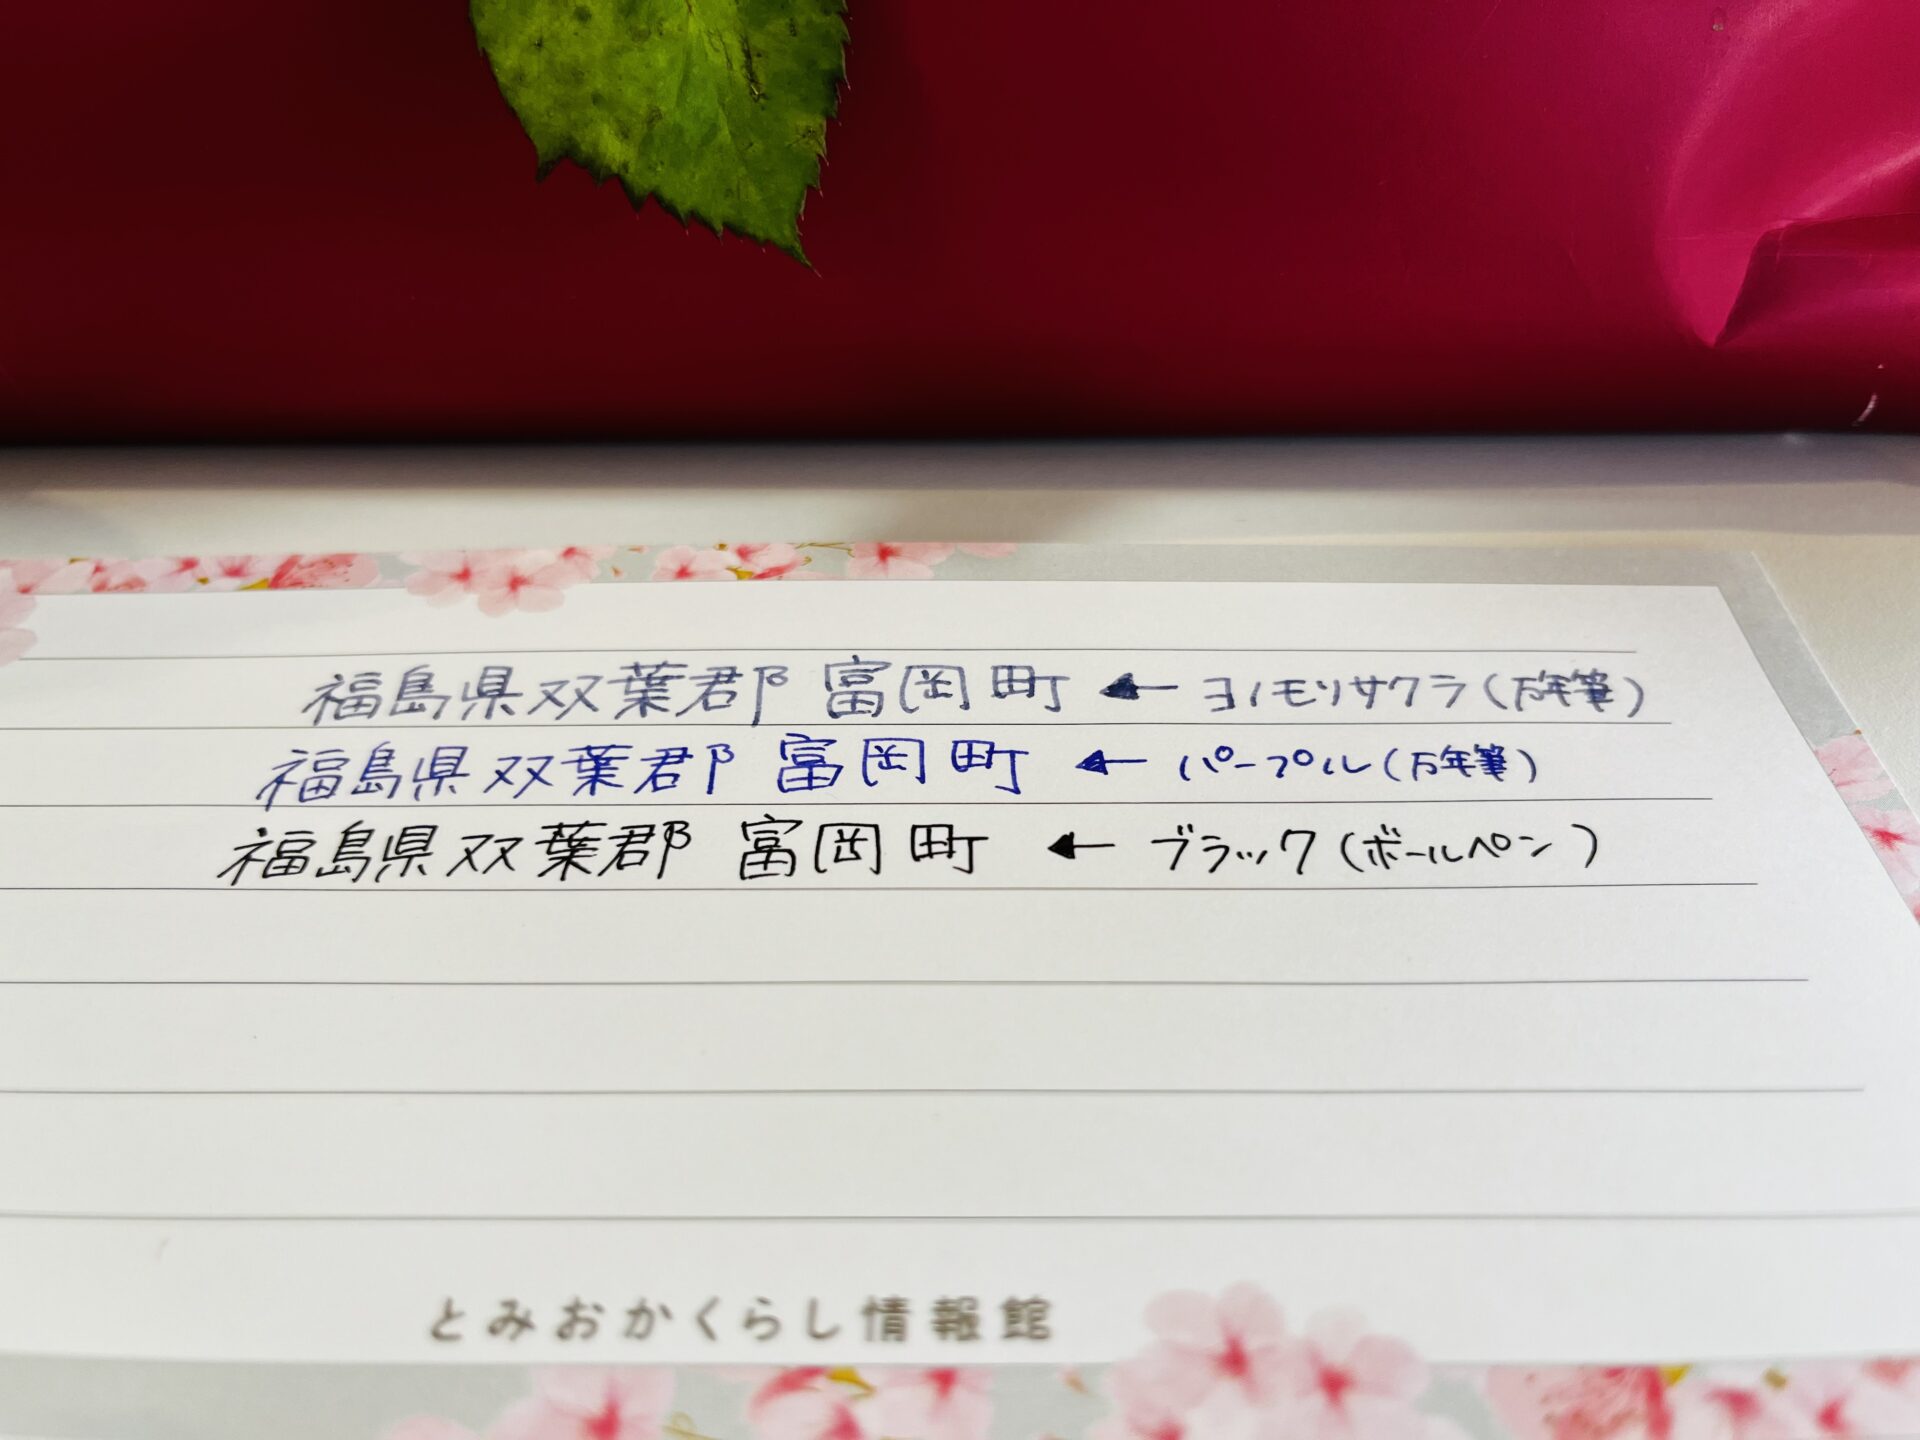 福島県双葉郡 富岡町 ← ヨノモリサクラ(万年筆)
福島県双葉郡 富岡町 ← パープル(万年筆)
福島県双葉郡 富岡町 ← ブラック(ボールペン)
とみおかくらし情報館